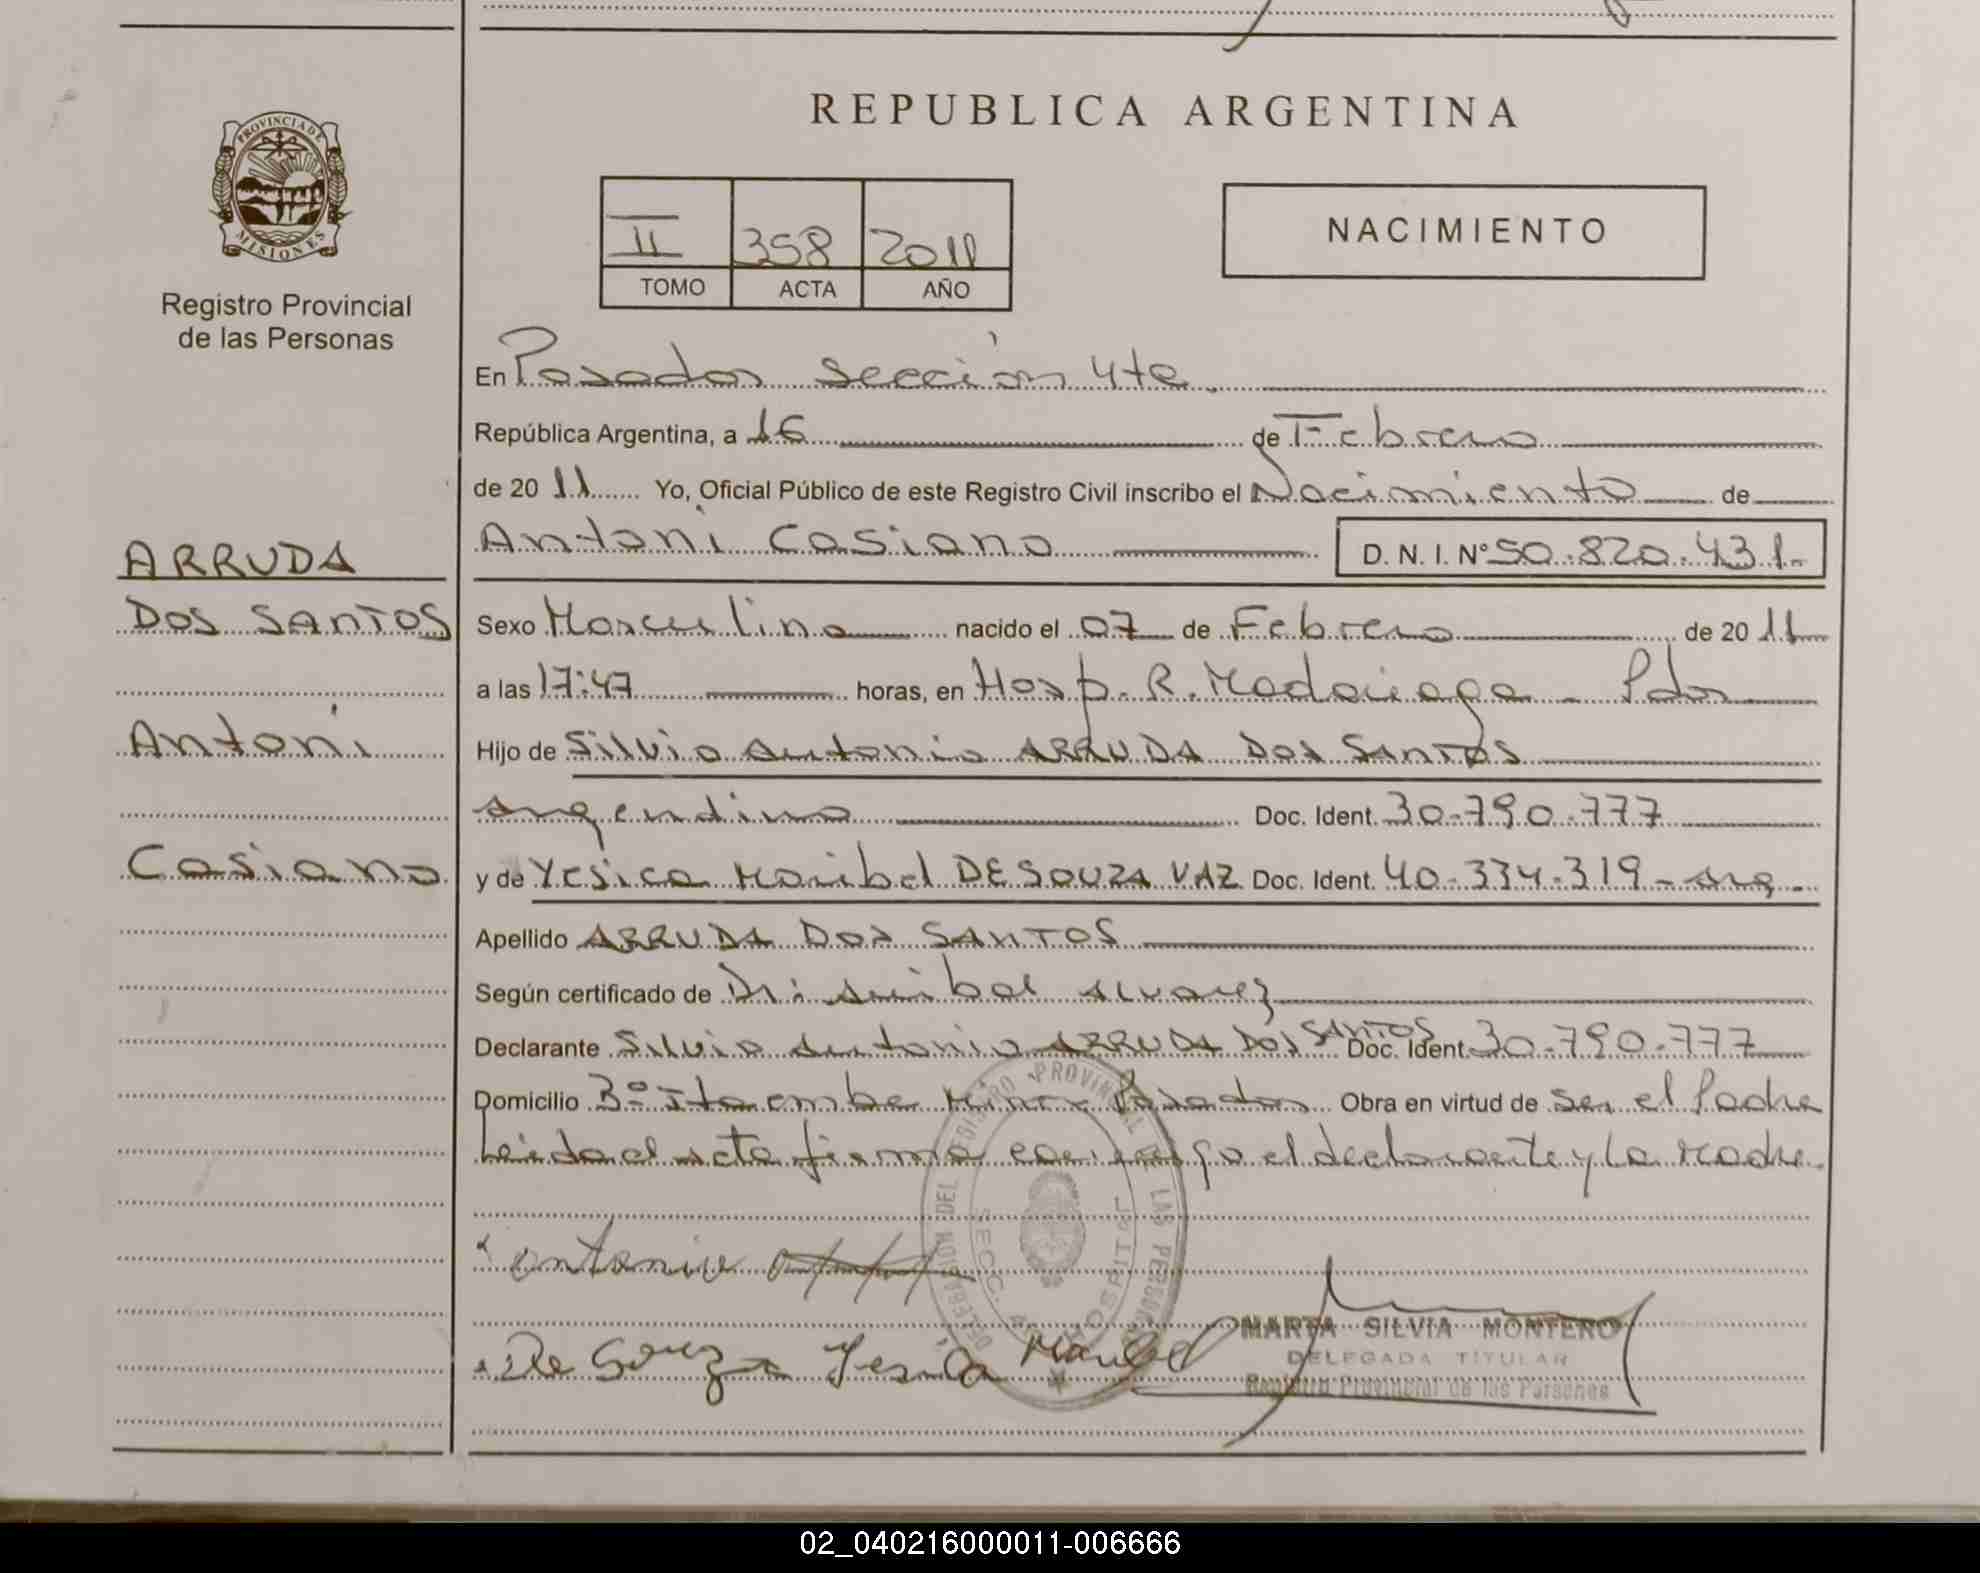 REPUBLICA ARGENTINA
PROVINCIA DE MISIONES
Registro Provincial
de las Personas
II 358 2011
TOMO ACTA AÑO
NACIMIENTO
En Posadas Sección 4ta.
República Argentina, a 16 de Febrero
de 2011 Yo, Oficial Público de este Registro Civil inscribo el Nacimiento de
Antoni Casiano D. N. I. N° 50.820.431.-
ARRUDA
DOS SANTOS
Antoni
Casiano
Sexo Masculino nacido el 07 de Febrero de 2011
a las 17:47 horas, en Hosp. R. Madariaga - Pdas
Hijo de Silvio Antonio ARRUDA DOS SANTOS
argentino Doc. Ident. 30.790.777
y de Yesica Maribel DE SOUZA VAZ Doc. Ident. 40.334.319 - arg.
Apellido ARRUDA DOS SANTOS
Según certificado de Dr: Anibal Alvarez
Declarante Silvio Antonio ARRUDA DOS SANTOS Doc. Ident. 30.790.777
Domicilio Bº Itaembe Mini - Posadas Obra en virtud de ser el Padre
Leida el acta firma conmigo el declarante y la Madre.
Antonio
De Souza Yesica Maribel
DELEGACION DEL REGISTRO PROVINCIAL DE LAS PERSONAS
SECC. 4 HOSPITAL
MARTA SILVIA MONTERO
DELEGADA TITULAR
Registro Provincial de las Personas
02_040216000011-006666